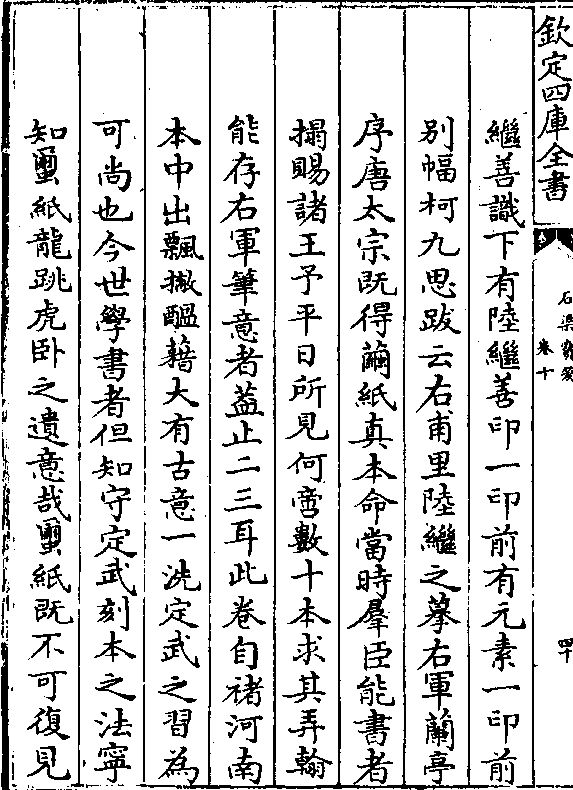 欽定四庫全書
石渠寶笈
卷十
四十
繼善識下有陸繼善印一印前有元素一印前
別幅柯九思跋云右甫里陸繼之摹右軍蘭亭
序唐太宗既得繭紙真本命當時羣臣能書者
搨賜諸王予平日所見何啻數十本求其弄翰
能存右軍筆意者葢止二三耳此卷自禇河南
本中出飄撇醞藉大有古意一洗定武之習為
可尚也今世學書者但知守定武刻本之法寧
知璽紙龍跳虎卧之遺意哉璽紙既不可復見